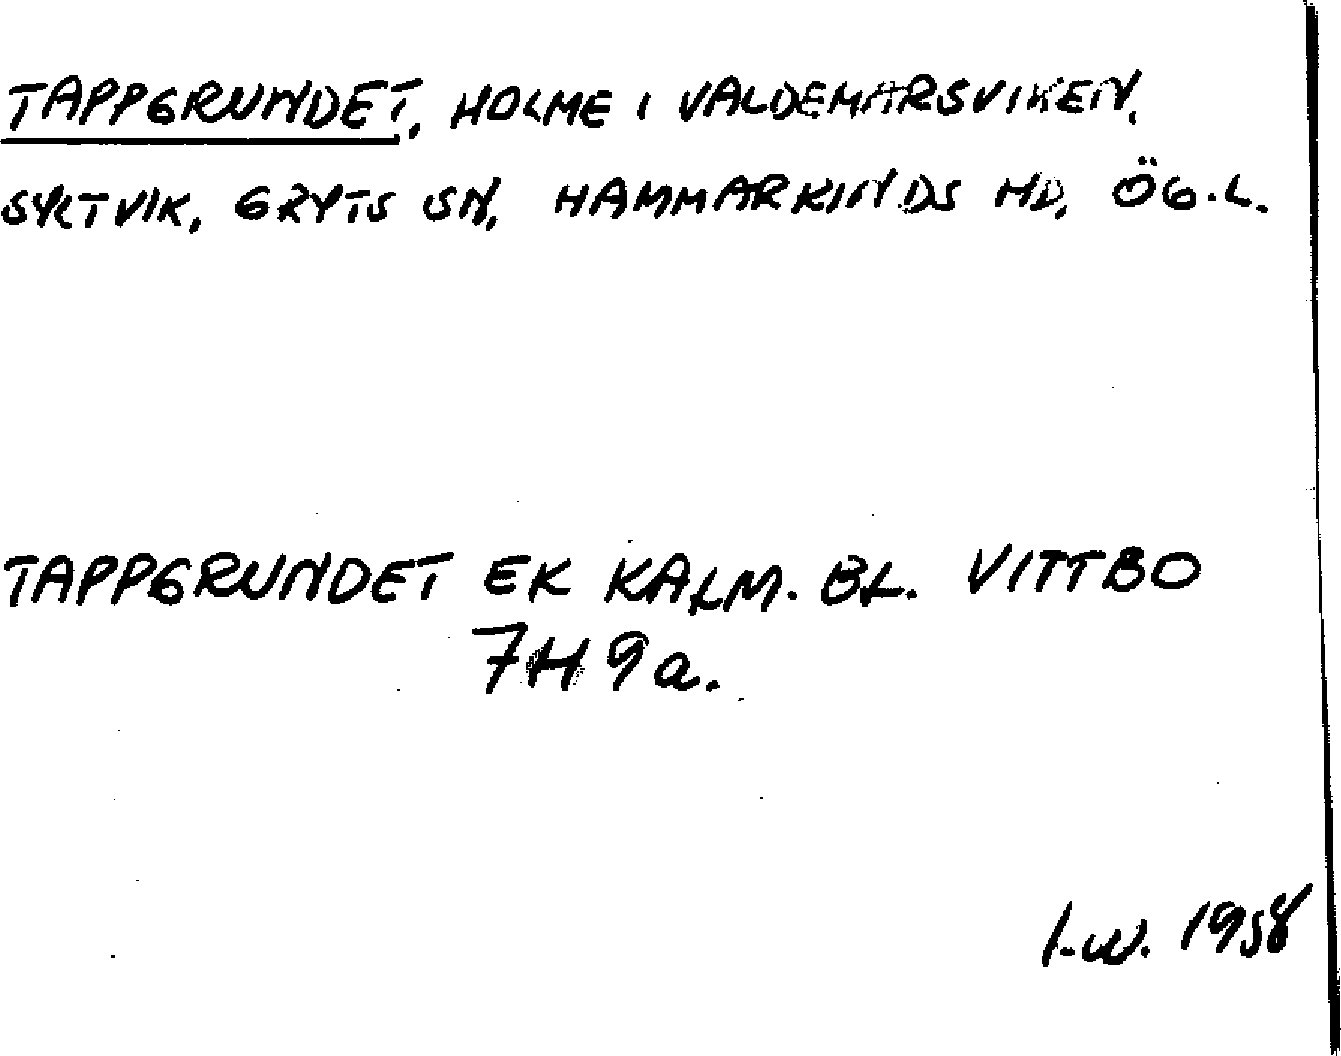 TAPPGRUNDET, HOLME I VALDEMARSVIKEN,
SYLTVIK, GRYTS SN, HAMMARKINDS HD, ÖG.L.
TAPPGRUNDET EK KALM. BL. VITTBO
7H 9a.
I.W. 1958